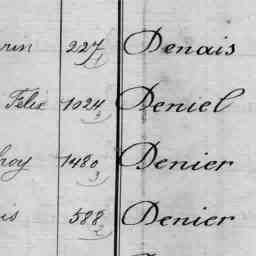 rin 227 Denais
1
Félix 1024 Deniel
3
hoy 1480 Denier
3
is 588 Denier
2